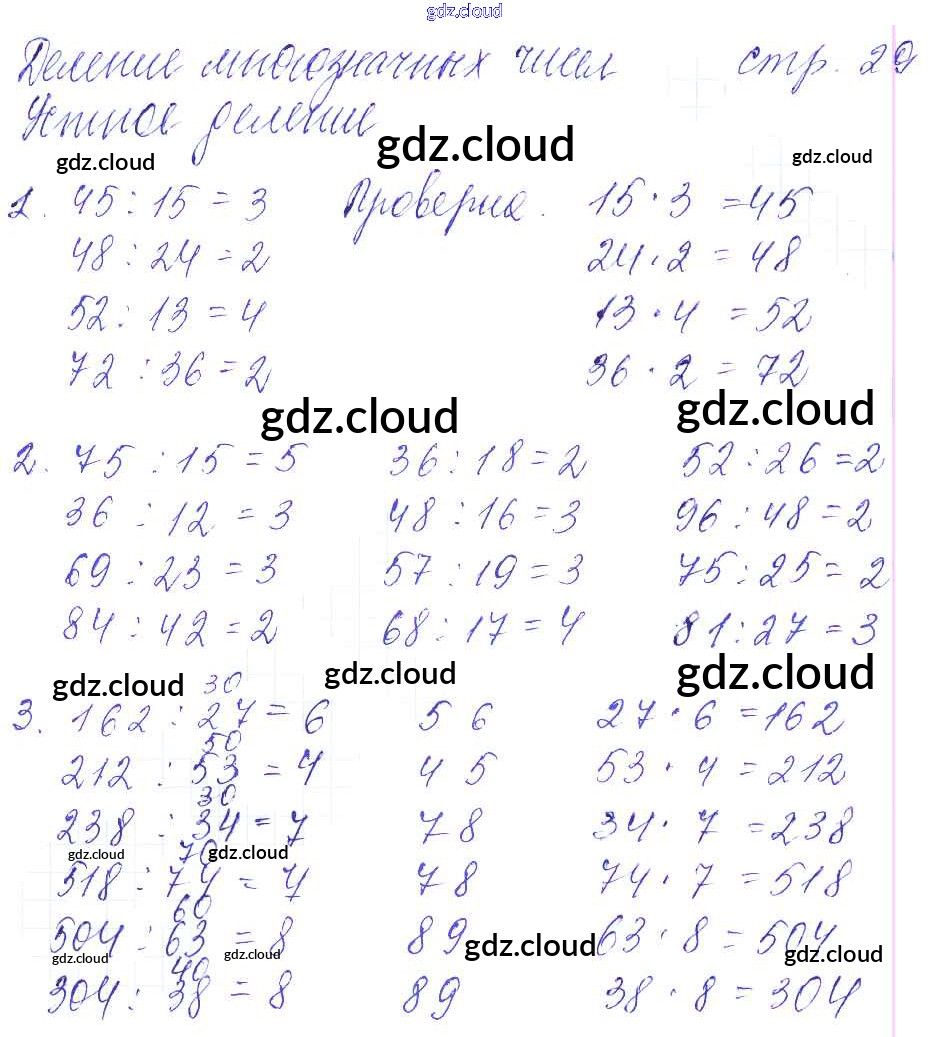 gdz.cloud
Деление многозначных чисел стр. 29
Устное деление
gdz.cloud gdz.cloud gdz.cloud
1. 45 : 15 = 3 Проверка. 15 · 3 = 45
48 : 24 = 2 24 · 2 = 48
52 : 13 = 4 13 · 4 = 52
72 : 36 = 2 36 · 2 = 72
gdz.cloud gdz.cloud
2. 75 : 15 = 5 36 : 18 = 2 52 : 26 = 2
36 : 12 = 3 48 : 16 = 3 96 : 48 = 2
69 : 23 = 3 57 : 19 = 3 75 : 25 = 2
84 : 42 = 2 68 : 17 = 4 81 : 27 = 3
gdz.cloud 30 gdz.cloud gdz.cloud
3. 162 : 27 = 6 5 6 27 · 6 = 162
50
212 : 53 = 4 4 5 53 · 4 = 212
30
238 : 34 = 7 7 8 34 · 7 = 238
gdz.cloud 70 gdz.cloud
518 : 74 = 7 7 8 74 · 7 = 518
60
504 : 63 = 8 8 9 gdz.cloud 63 · 8 = 504
gdz.cloud 40 gdz.cloud gdz.cloud
304 : 38 = 8 8 9 38 · 8 = 304